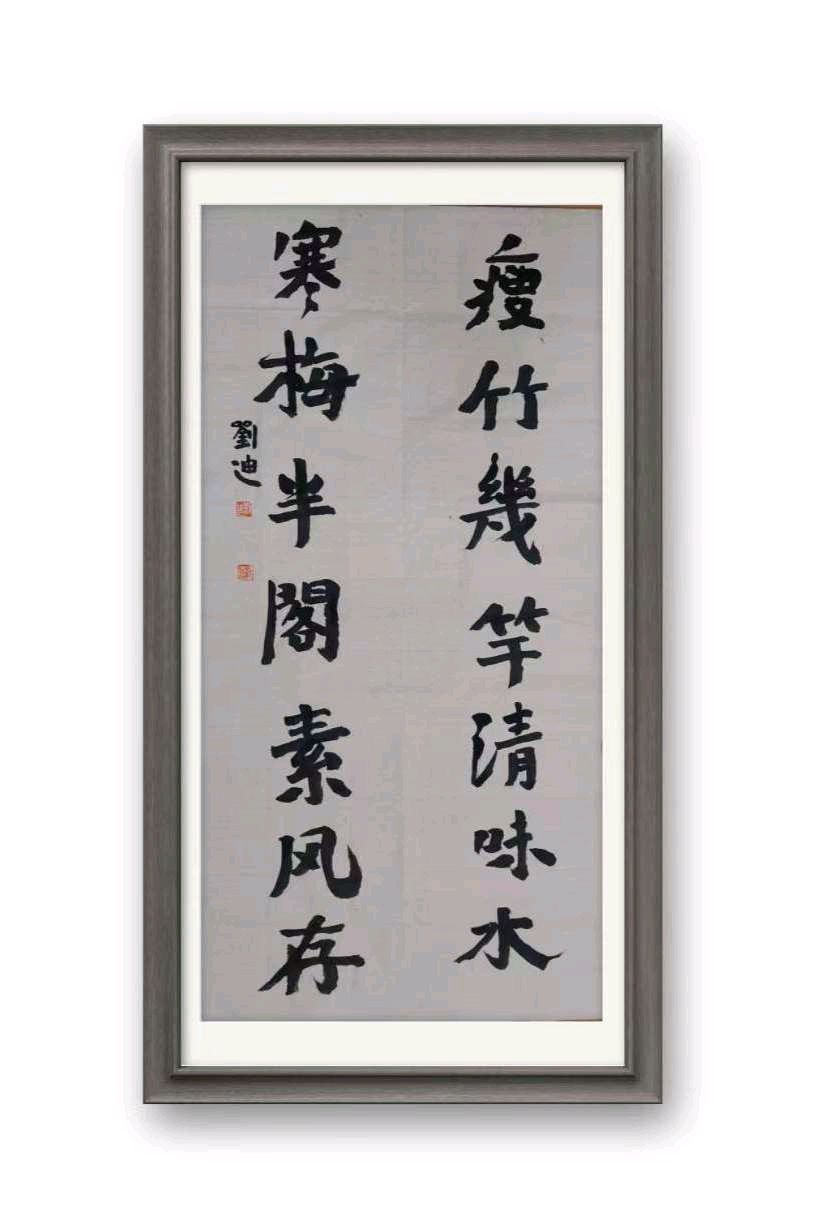 瘦竹幾竿清味水
寒梅半閣素风存
劉迪